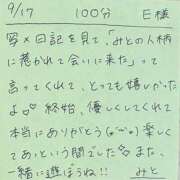 9/17 100分 E様
写メ日記を見て、「みとの人柄
に惹かれて会いに来た」って
言ってくれて、とっても嬉しかった
よ♡ 終始、優しくしてくれて
本当にありがとう(o^^o) 楽しく
てあっという間でした♡また、
一緒に遊ぼうね!! みと